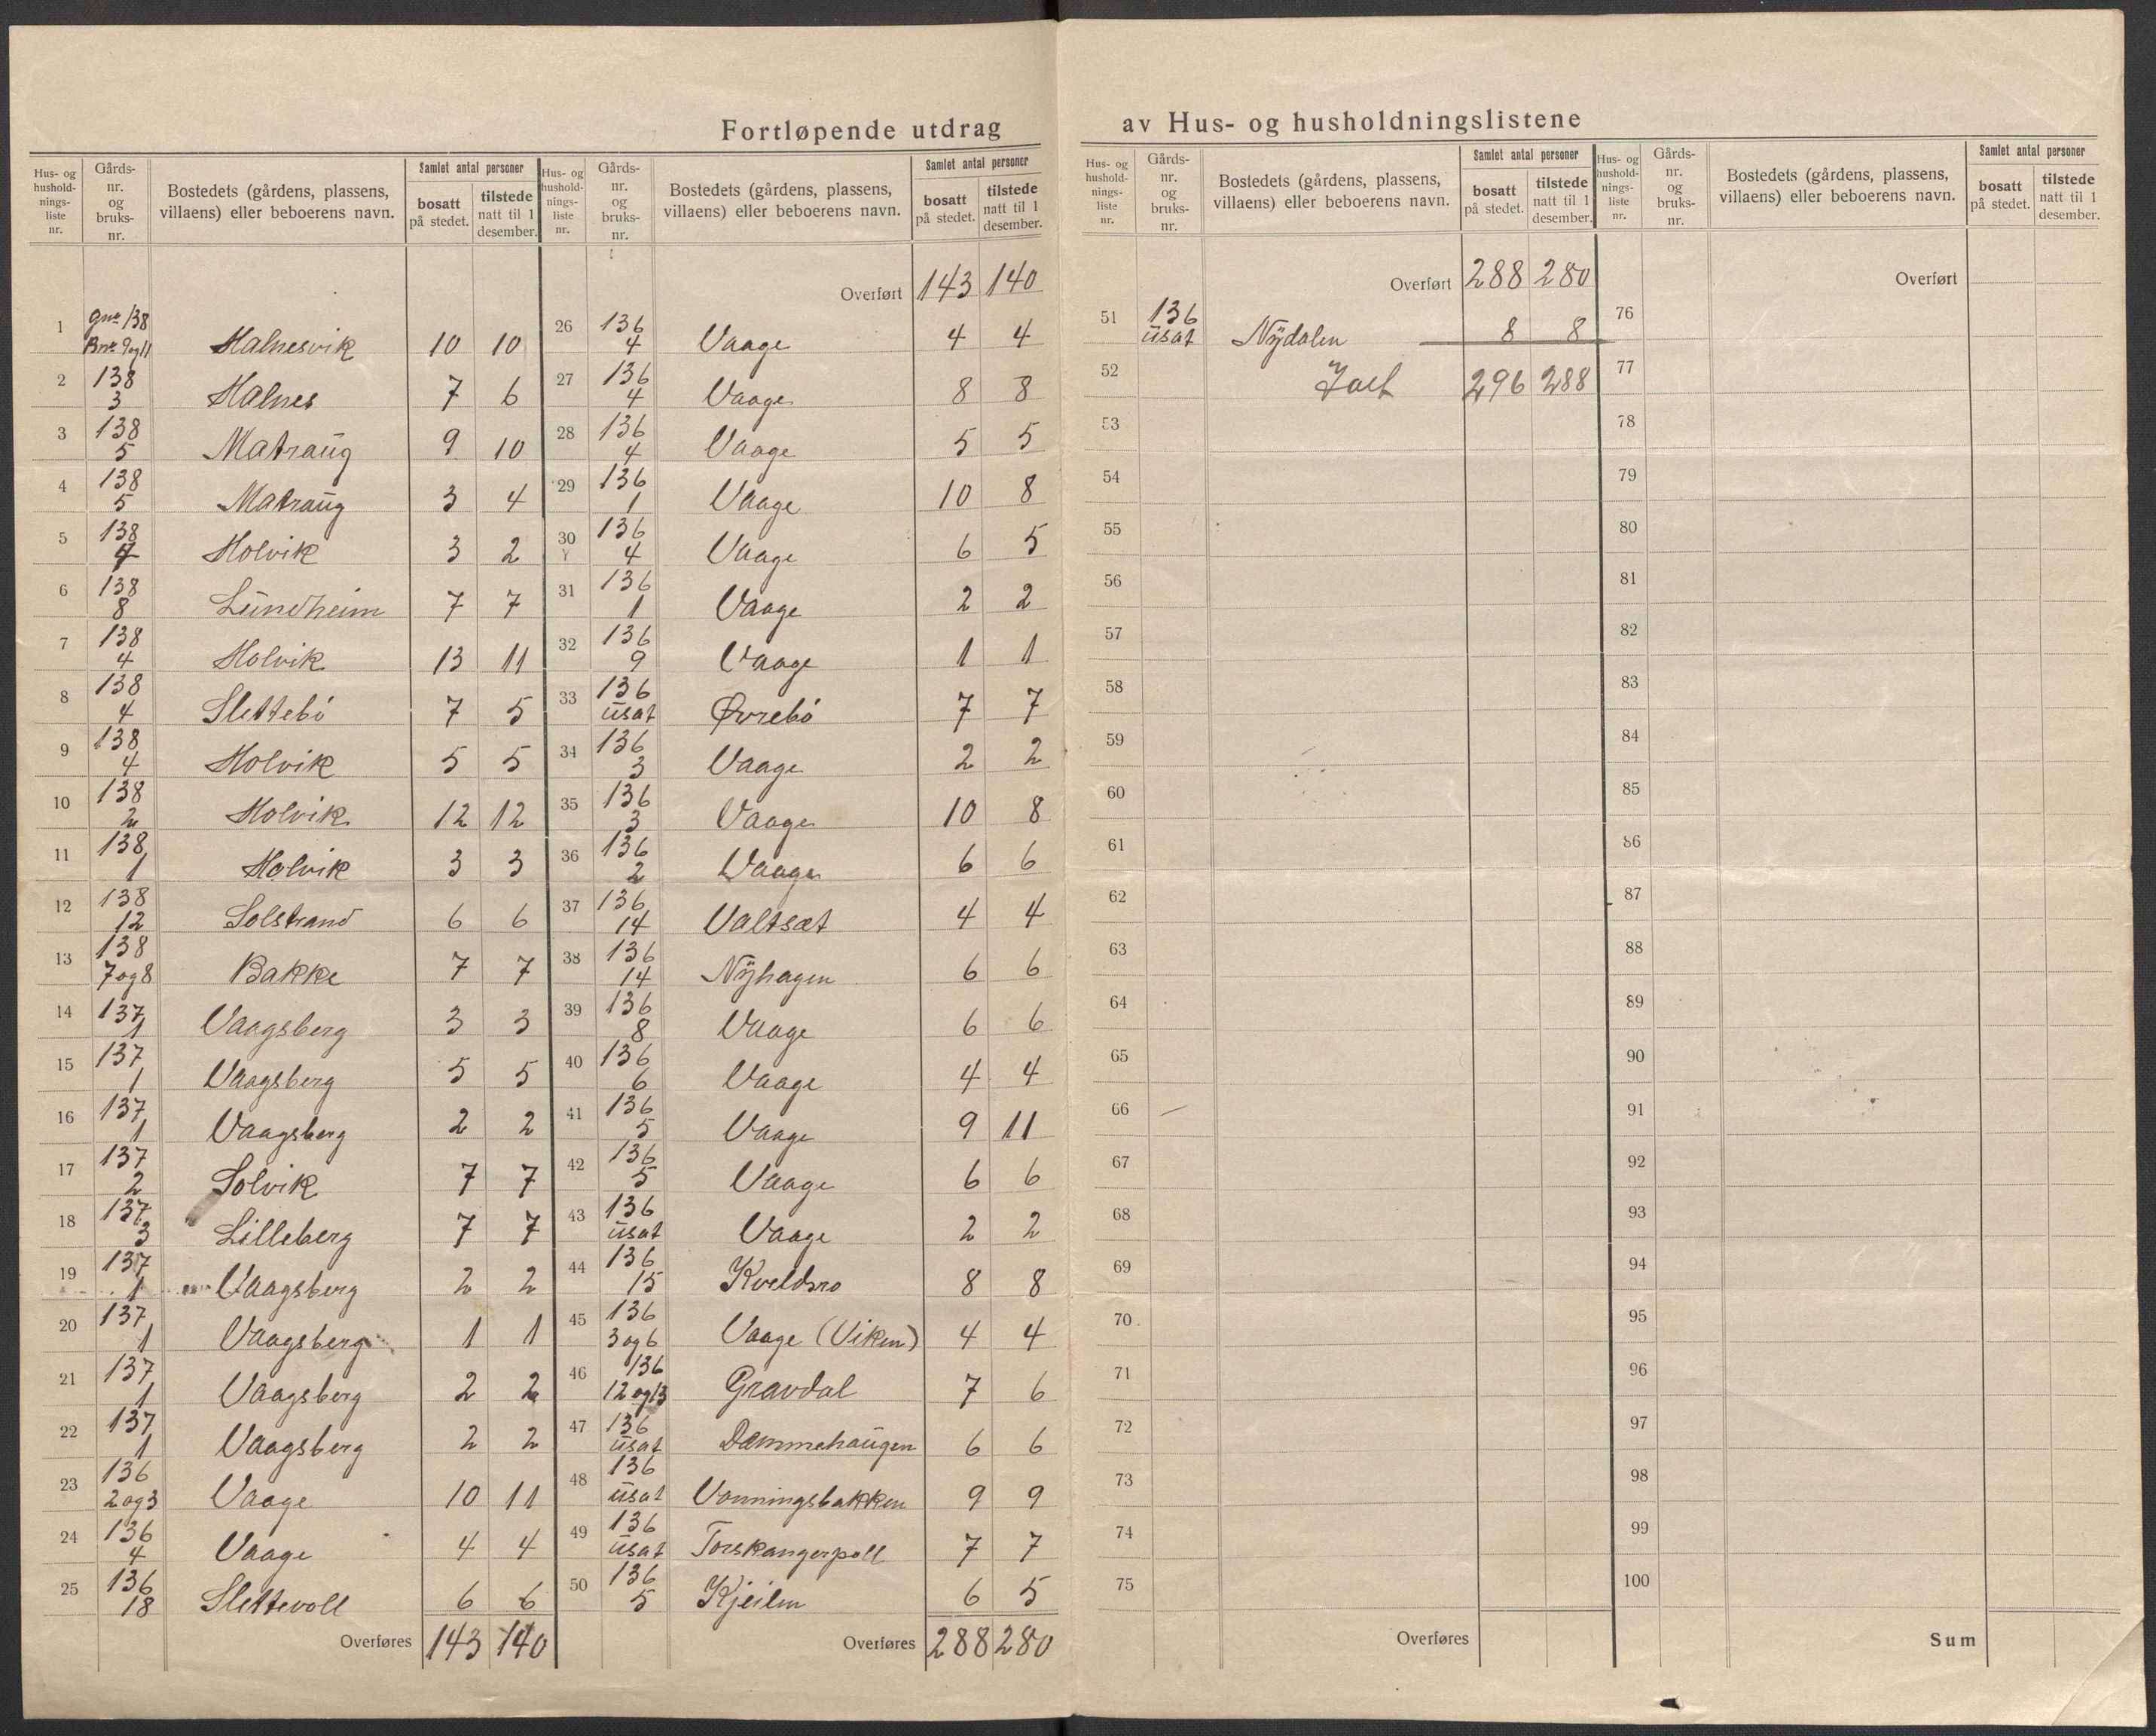 Fortløpende utdrag av Hus- og husholdningslistene
Hus- og hushold-nings-liste nr. | Gårds-nr. og bruks-nr. | Bostedets (gårdens, plassens, villaens) eller beboerens navn. | Samlet antal personer | bosatt på stedet. | tilstede natt til 1 desember.
1 | gnr 138 Bnr 9og11 | Halnesvik | 10 | 10
2 | 138 3 | Halnes | 7 | 6
3 | 138 5 | Matraug | 9 | 10
4 | 138 5 | Matraug | 3 | 4
5 | 138 4 | Holvik | 3 | 2
6 | 138 8 | Lundheim | 7 | 7
7 | 138 4 | Holvik | 13 | 11
8 | 138 4 | Slettebö | 7 | 5
9 | 138 4 | Holvik | 5 | 5
10 | 138 2 | Holvik | 12 | 12
11 | 138 1 | Holvik | 3 | 3
12 | 138 12 | Solstrand | 6 | 6
13 | 138 7og8 | Bakke | 7 | 7
14 | 137 1 | Vaagsberg | 3 | 3
15 | 137 1 | Vaagsberg | 5 | 5
16 | 137 1 | Vaagsberg | 2 | 2
17 | 137 2 | Solvik | 7 | 7
18 | 137 3 | Lilleberg | 7 | 7
19 | 137 1 | Vaagsberg | 2 | 2
20 | 137 1 | Vaagsberg | 1 | 1
21 | 137 1 | Vaagsberg | 2 | 2
22 | 137 1 | Vaagsberg | 2 | 2
23 | 136 2og3 | Vaage | 10 | 11
24 | 136 4 | Vaage | 4 | 4
25 | 136 18 | Slettevoll | 6 | 6
Overføres 143 140
Hus- og hushold-nings-liste nr. | Gårds-nr. og bruks-nr. | Bostedets (gårdens, plassens, villaens) eller beboerens navn. | Samlet antal personer | bosatt på stedet. | tilstede natt til 1 desember.
Overført 143 140
26 | 136 4 | Vaage | 4 | 4
27 | 136 4 | Vaage | 8 | 8
28 | 136 4 | Vaage | 5 | 5
29 | 136 1 | Vaage | 10 | 8
30 | 136 4 | Vaage | 6 | 5
31 | 136 1 | Vaage | 2 | 2
32 | 136 9 | Vaage | 1 | 1
33 | 136 usat | Øvrebö | 7 | 7
34 | 136 3 | Vaage | 2 | 2
35 | 136 3 | Vaage | 10 | 8
36 | 136 2 | Vaage | 6 | 6
37 | 136 14 | Valtsæt | 4 | 4
38 | 136 14 | Nyhagen | 6 | 6
39 | 136 8 | Vaage | 6 | 6
40 | 136 6 | Vaage | 4 | 4
41 | 136 5 | Vaage | 9 | 11
42 | 136 5 | Vaage | 6 | 6
43 | 136 usat | Vaage | 2 | 2
44 | 136 15 | Kveldsro | 8 | 8
45 | 136 3og6 | Vaage (Viken) | 4 | 4
46 | 136 12og13 | Gravdal | 7 | 6
47 | 136 usat | Dammehaugen | 6 | 6
48 | 136 usat | Vonningsbakken | 9 | 9
49 | 136 usat | Torskangerpoll | 7 | 7
50 | 136 5 | Kjeilen | 6 | 5
Overføres 288 280
Hus- og hushold-nings-liste nr. | Gårds-nr. og bruks-nr. | Bostedets (gårdens, plassens, villaens) eller beboerens navn. | Samlet antal personer | bosatt på stedet. | tilstede natt til 1 desember.
Overført 288 280
51 | 136 usat | Nydalen | 8 | 8
52 | Ialt | 296 | 288
53
54
55
56
57
58
59
60
61
62
63
64
65
66
67
68
69
70
71
72
73
74
75
Overføres
Hus- og hushold-nings-liste nr. | Gårds-nr. og bruks-nr. | Bostedets (gårdens, plassens, villaens) eller beboerens navn. | Samlet antal personer | bosatt på stedet. | tilstede natt til 1 desember.
Overført
76
77
78
79
80
81
82
83
84
85
86
87
88
89
90
91
92
93
94
95
96
97
98
99
100
Sum